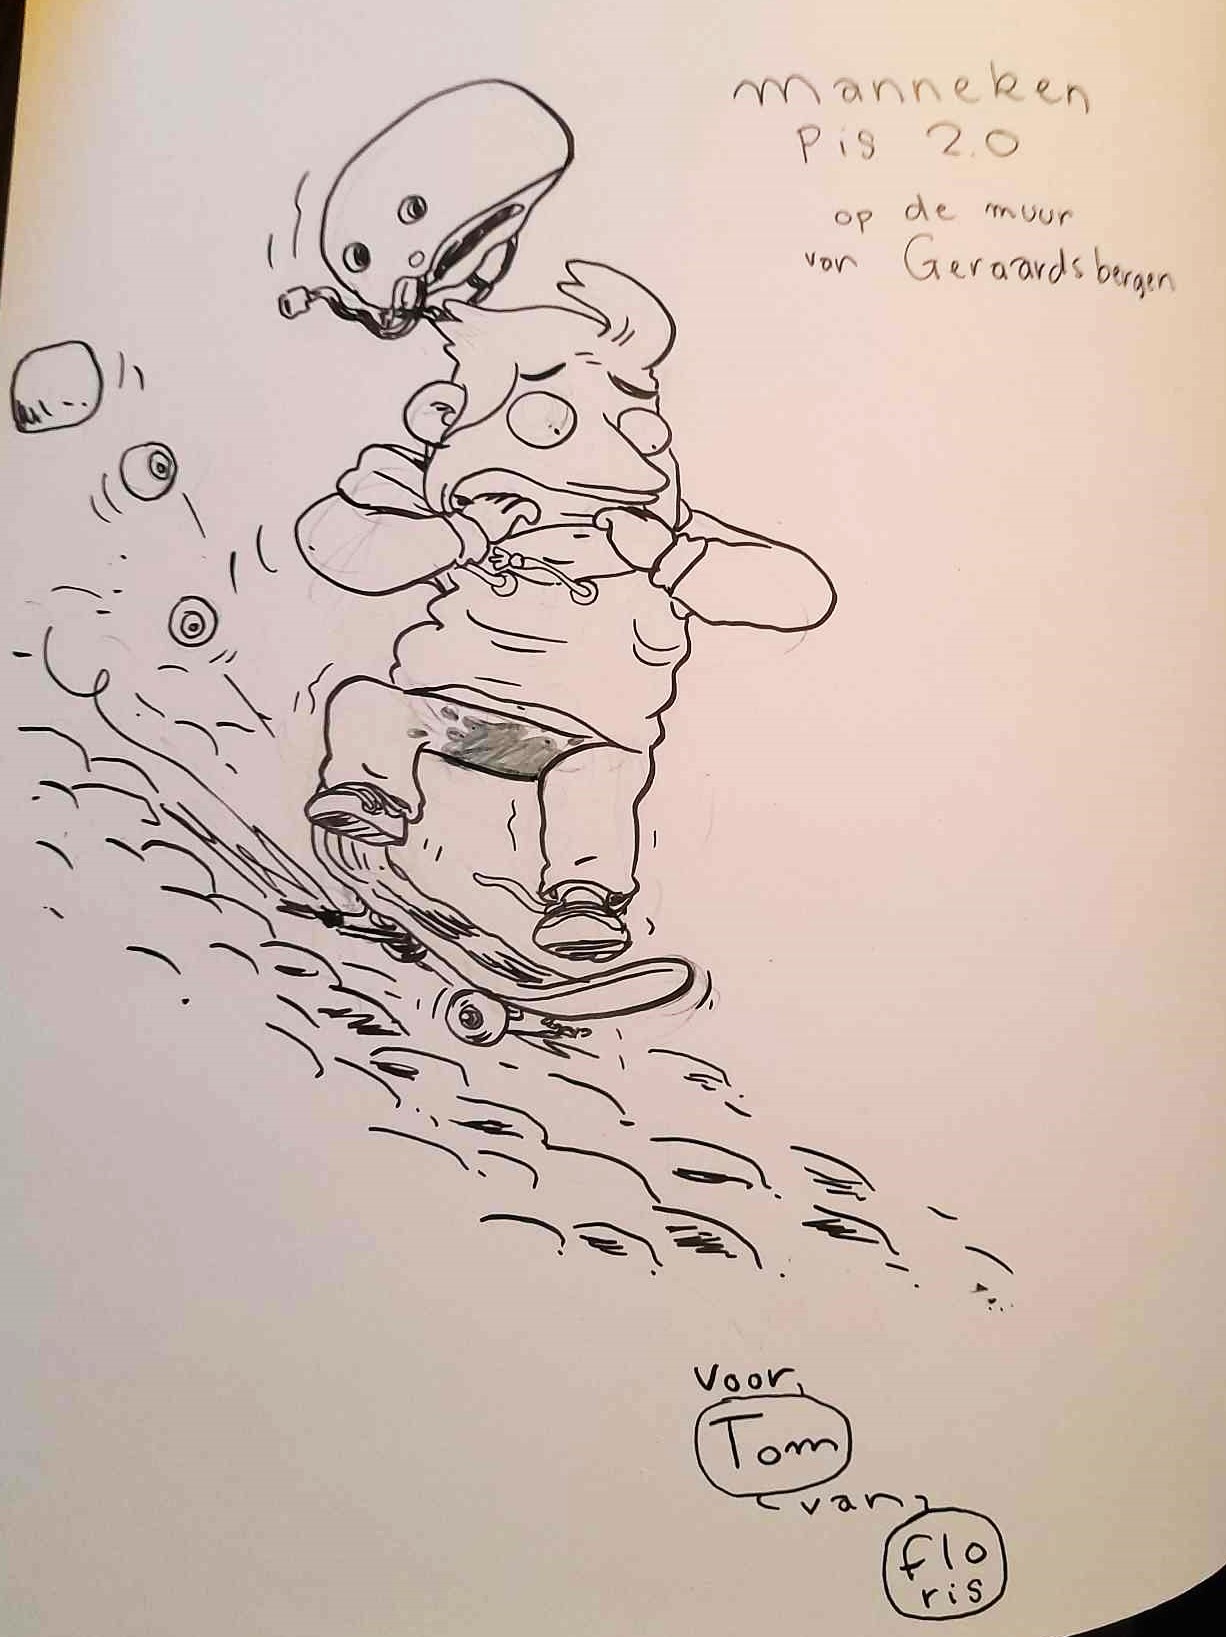 manneken
Pis 2.0
op de muur
van Geraardsbergen
voor,
Tom
van
flo
ris